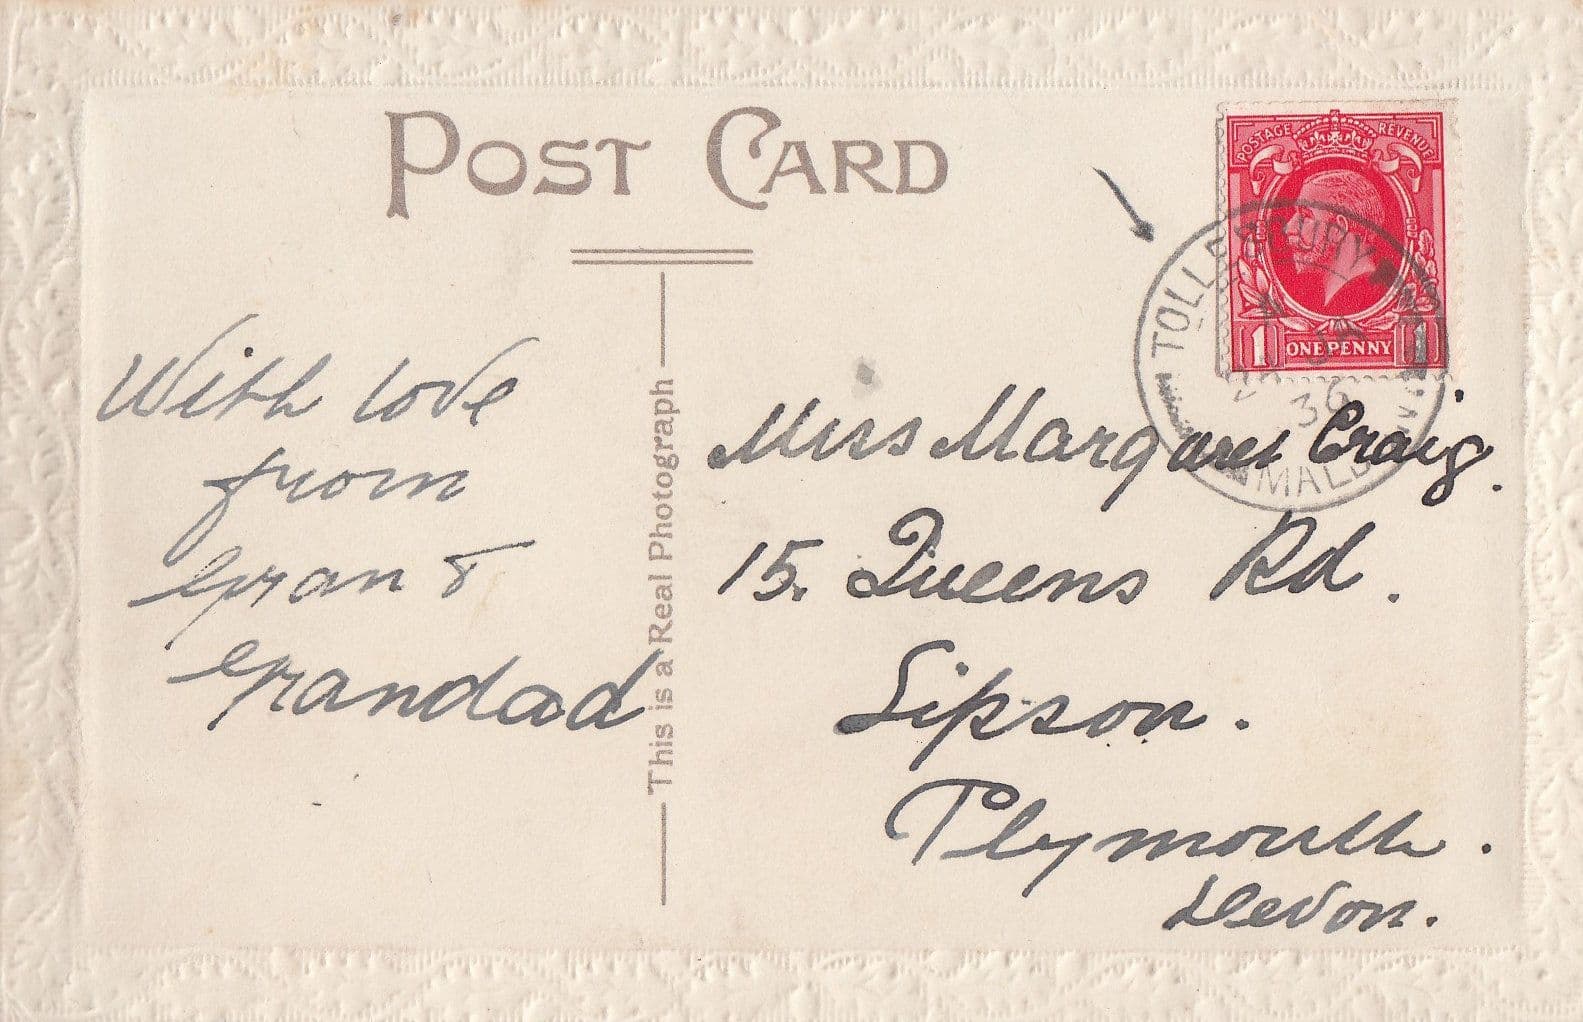 POST CARD
POSTAGE REVENUE
1 ONE PENNY 1
TOLLESBURY
JA
36
MALDON
With love
from
Gran &
Grandad
This is a Real Photograph
Miss Margaret Craig.
15. Queens Rd.
Lipson.
Plymouth.
Devon.